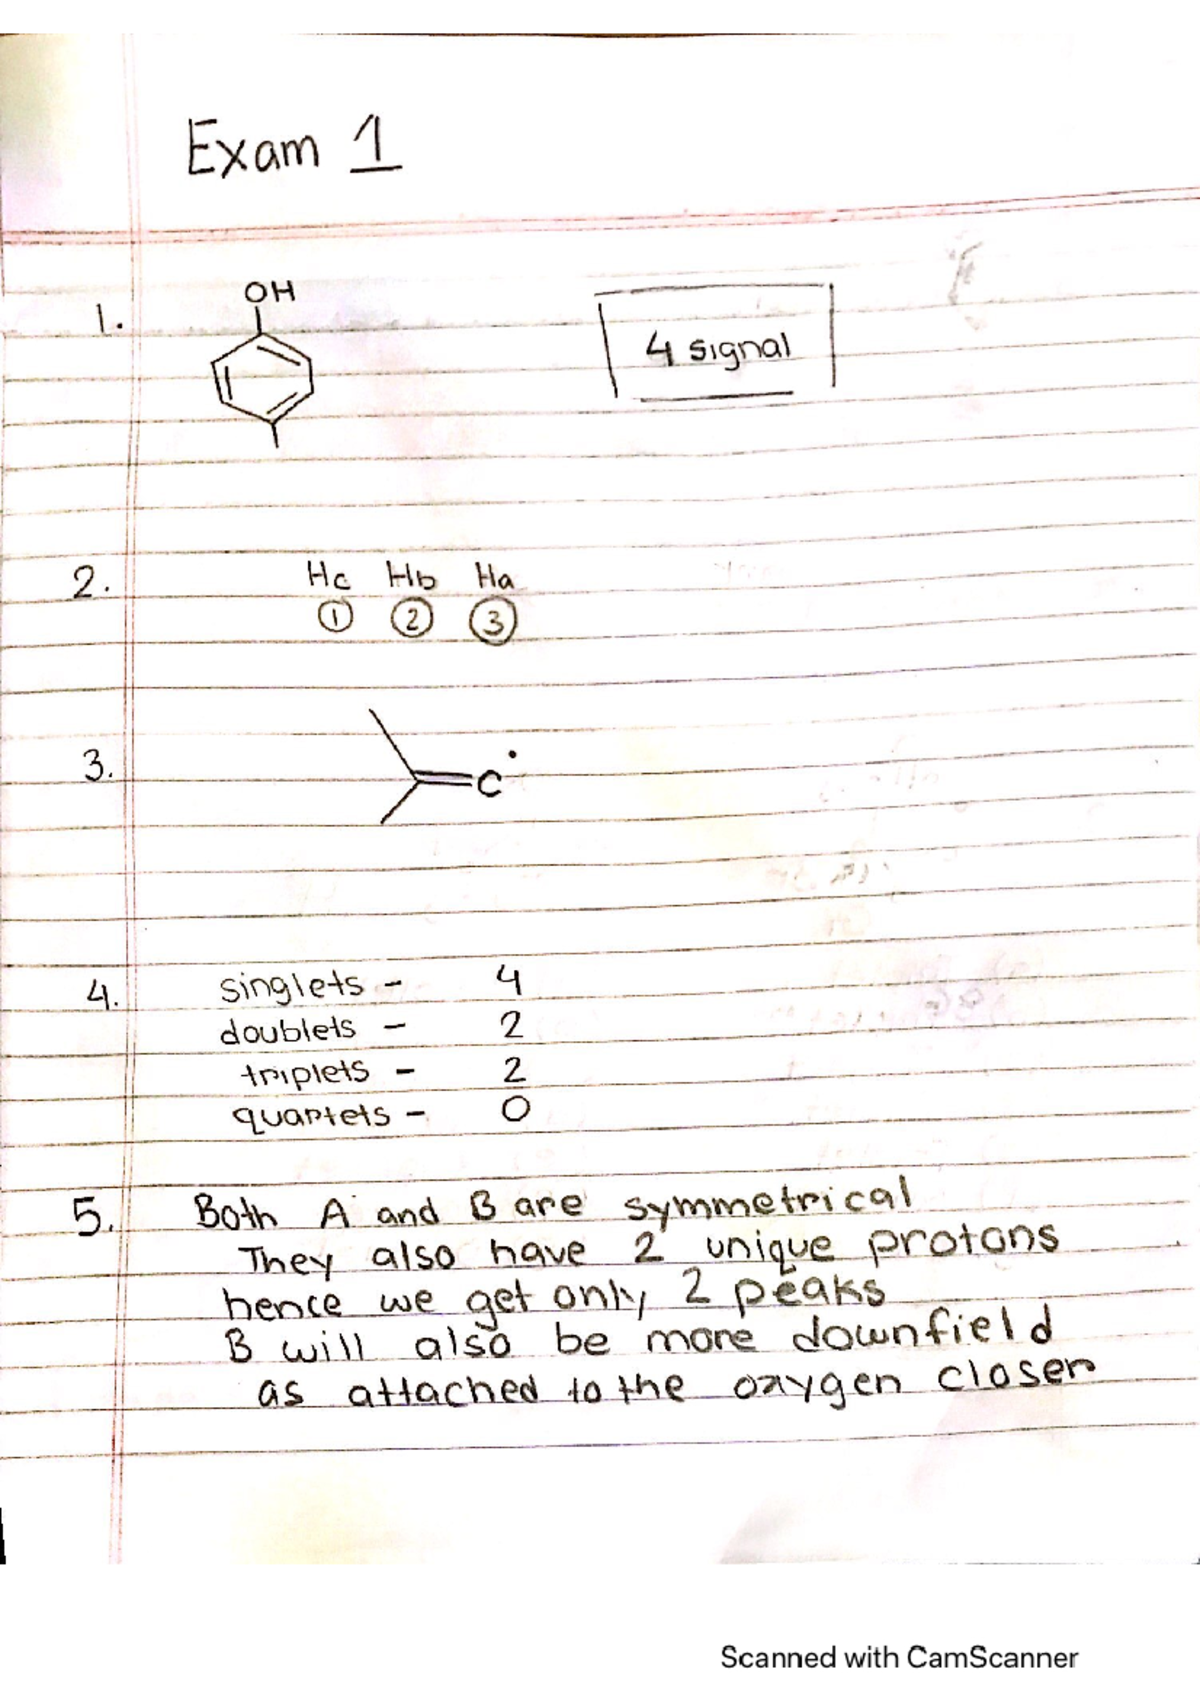 Exam 1
1.
OH
4 signal
2.
Hc Hb Ha
1 2 3
3.
C
4. singlets - 4
doublets - 2
triplets - 2
quartets - 0
5. Both A and B are symmetrical
They also have 2 unique protons
hence we get only 2 peaks
B will also be more downfield
as attached to the oxygen closer
Scanned with CamScanner